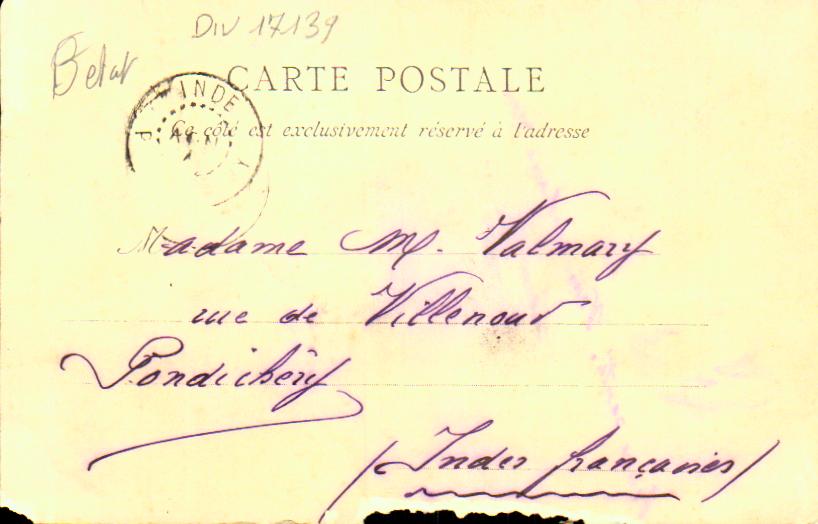 Div 17139
CARTE POSTALE
INDE
Ce côté est exclusivement réservé à l'adresse
Madame M. Valmary
rue de Villenour
Pondichéry
(Indes françaises)